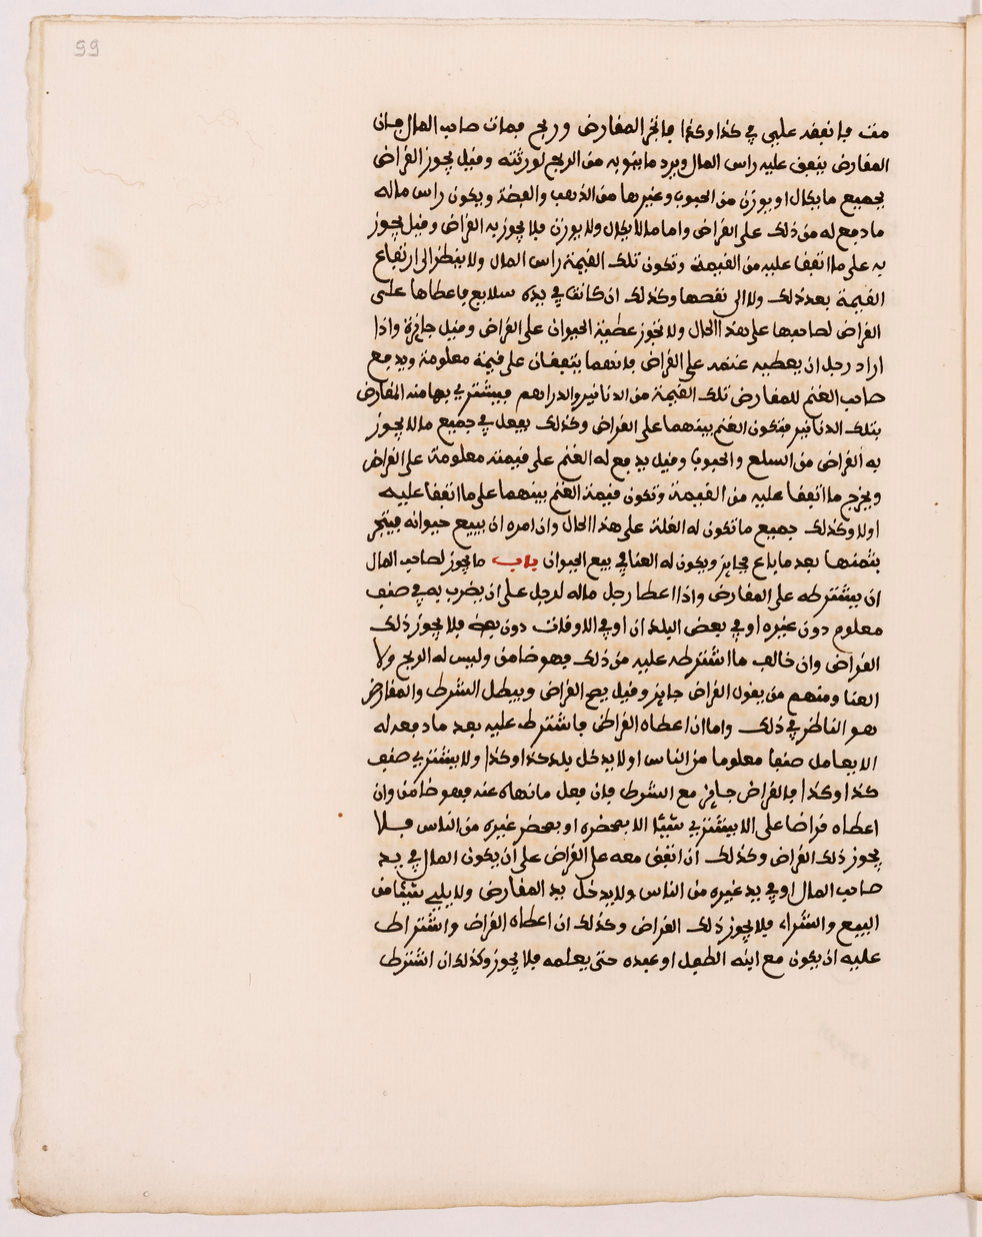 99
مت فانفقه علي في كذا وكذا فاتجر المقارض وربح فمات صاحب المال فان
المقارض ينفق عليه راس المال ويرد ما ينوبه من الربح لورثته وقيل يجوز القراض
بجميع ما يكال او يوزن من الحبوب وغيرها من الذهب والفضة ويكون راس ماله
ما دفع له من ذلك على القراض واما ما لا يكال ولا يوزن فلا يجوز به القراض وقيل يجوز
به على ما اتفقا عليه من القيمة وتكون تلك القيمة راس المال ولا ينظر الى ارتفاع
القيمة بعد ذلك ولا الى نقصها وكذلك ان كانت في يده سلايع فاعطاها على
القراض لصاحبها على هذا الحال ولا تجوز عطية الحيوان على القراض وقيل جائزة واذا
اراد رجل ان يعطيه غنمه على القراض فانهما يتفقان على قيمة معلومة ويدفع
صاحب الغنم للمقارض تلك القيمة من الدنانير والدراهم فيشتري بها منه المقارض
بتلك الدنانير فتكون الغنم بينهما على القراض وكذلك يفعل في جميع ما لا يجوز
به القراض من السلع والحبوب وقيل يدفع له الغنم على قيمة معلومة على القراض
ويخرج ما اتفقا عليه من القيمة وتكون قيمة الغنم بينهما على ما اتفقا عليه
اولا وكذلك جميع ما تكون له الغلة على هذا الحال وان امره ان يبيع حيوانه فيتجر
بثمنها بعد ما باع فجايز ويكون له العنا في بيع الحيوان باب ما يجوز لصاحب المال
ان يشترطه على المقارض واذا اعطا رجل ماله لرجل على ان يضرب به في صنف
معلوم دون غيره او في بعض البلدان او في الاوقات دون بعض فلا يجوز ذلك
القراض وان خالف ما اشترطه عليه من ذلك فهو ضامن وليس له الربح ولا
العنا ومنهم من يقول القراض جايز وقيل يصح القراض ويبطل الشرط والمقارض
هو الناظر في ذلك واما ان اعطاه القراض فاشترط عليه بعد ما دفعه له
الا يعامل صنفا معلوما من الناس او لا يدخل بلد كذا وكذا ولا يشتري صنف
كذا وكذا فالقراض جايز مع الشرط فان فعل ما نهاه عنه فهو ضامن وان
اعطاه قراضا على الا يشتري شيئا الا بمحضره او بمحضر غيره من الناس فلا
يجوز ذلك القراض وكذلك ان اتفق معه على القراض على ان يكون المال في يد
صاحب المال او في يد غيره من الناس ولا يدخل يد المقارض ولا يلي شيئا من
البيع والشراء فلا يجوز ذلك القراض وكذلك ان اعطاه القراض واشترط
عليه ان يكون مع ابنه الطفل او عبده حتى يعلمه فلا يجوز وكذلك ان اشترط